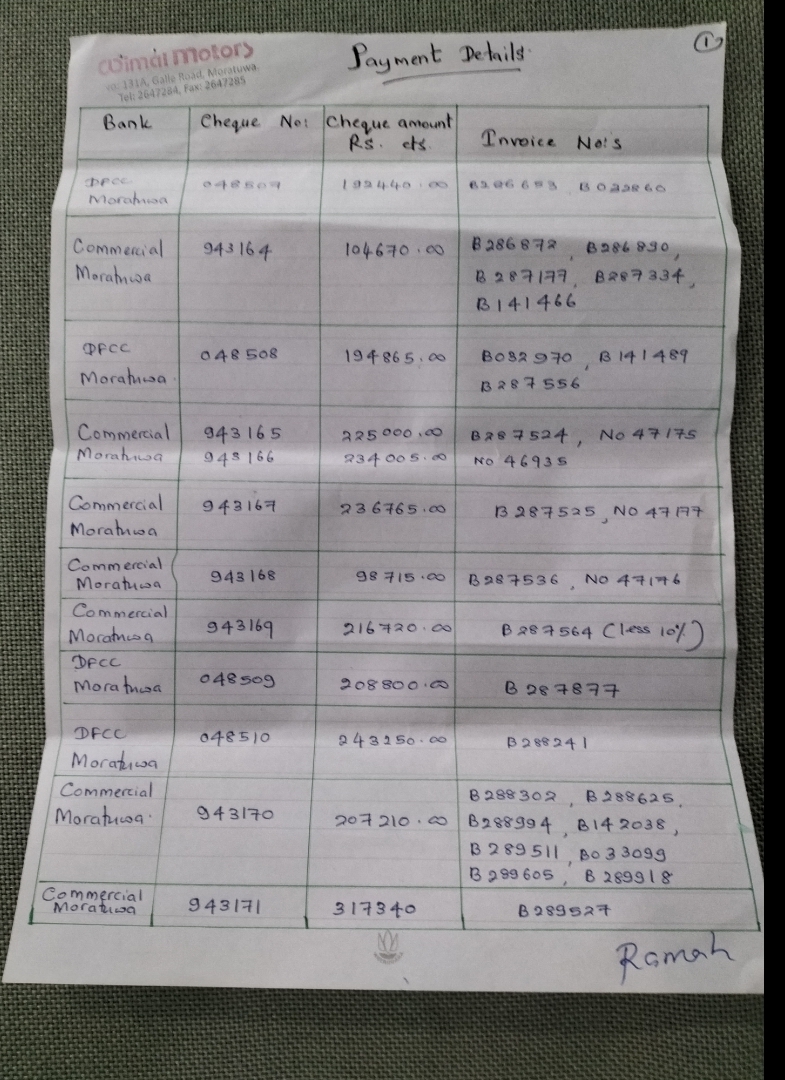 Wimal Motors
No: 131A, Galle Road, Moratuwa.
Tel: 2647284, Fax: 2647285
Payment Details
1
Bank Cheque No: Cheque amount Invoice No's
Rs. cts.
DFCC 048507 192440.00 B286653, B032860
Moratuwa
Commercial 943164 104670.00 B286872, B286890,
Moratuwa B287177, B287334,
B141466
DFCC 048508 194865.00 B032970, B141489
Moratuwa. B287556
Commercial 943165 225000.00 B287524, No 47175
Moratuwa 943166 234005.00 No 46935
Commercial 943167 236765.00 B287525, No 47177
Moratuwa
Commercial 943168 98715.00 B287536, No 47176
Moratuwa
Commercial 943169 216720.00 B287564 (less 10%)
Moratuwa
DFCC 048509 208800.00 B287877
Moratuwa
DFCC 048510 243250.00 B288241
Moratuwa
Commercial 943170 207210.00 B288302, B288625,
Moratuwa. B288994, B142038,
B289511, B033099
B299605, B289918
Commercial 943171 317340 B289527
Moratuwa
Ramah